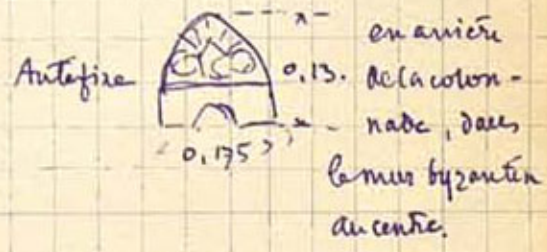 Antéfixe
0,13.
0,175
en arrière
de la colon-
nade, dans
le mur byzantin
au centre.